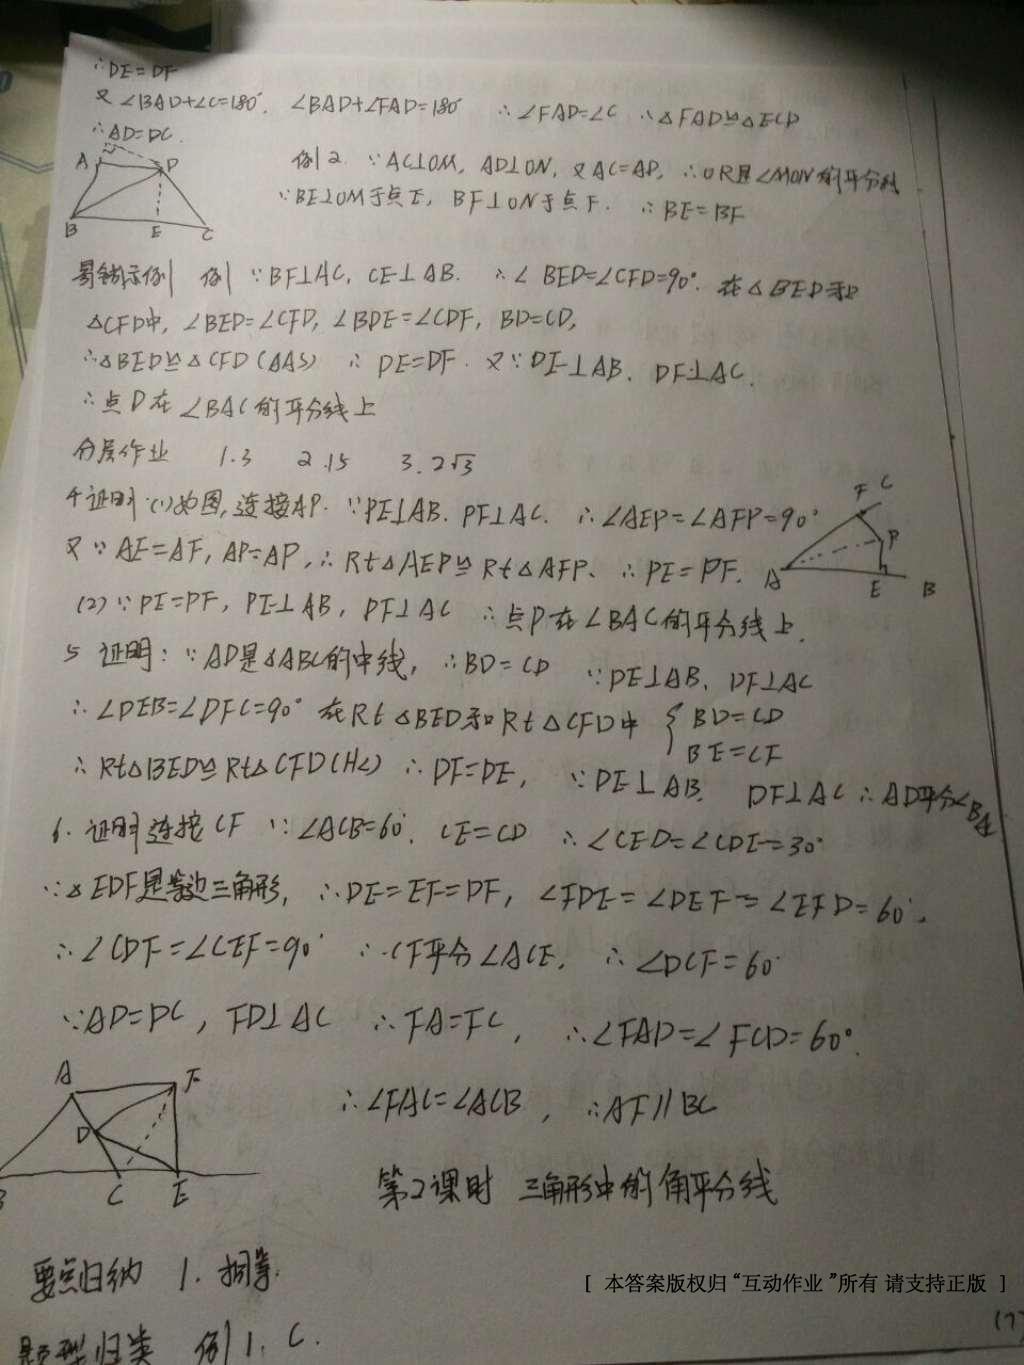 ∴DE=DF
又∠BAD+∠C=180°. ∠BAD+∠FAD=180° ∴∠FAD=∠C ∴△FAD≌△ECD
∴AD=DC.
A D
B E C
例2. ∵AC⊥OM, AD⊥ON, 又AC=AD, ∴OR是∠MON的平分线
∵BE⊥OM于点E, BF⊥ON于点F. ∴BE=BF
易错示例 例 ∵BF⊥AC, CE⊥AB. ∴∠BED=∠CFD=90°. 在△BED和
△CFD中, ∠BED=∠CFD, ∠BDE=∠CDF, BD=CD,
∴△BED≌△CFD(AAS) ∴DE=DF. 又∵DE⊥AB, DF⊥AC.
∴点D在∠BAC的平分线上
分层作业 1.3 2.15 3.2√3
4 证明:(1)如图,连接AP. ∵PE⊥AB. PF⊥AC. ∴∠AEP=∠AFP=90°
又∵AE=AF, AP=AP, ∴Rt△AEP≌Rt△AFP. ∴PE=PF.
F C
P
A E B
(2)∵PE=PF, PE⊥AB, PF⊥AC ∴点P在∠BAC的平分线上.
5 证明:∵AD是△ABC的中线, ∴BD=CD ∵DE⊥AB, DF⊥AC
∴∠DEB=∠DFC=90° 在Rt△BED和Rt△CFD中 { BD=CD
BE=CF
∴Rt△BED≌Rt△CFD(HL) ∴DF=DE, ∵DE⊥AB. DF⊥AC ∴AD平分∠BAC
6. 证明 连接CF ∵∠ACB=60°. CE=CD ∴∠CED=∠CDE=30°
∵△EDF是等边三角形, ∴DE=EF=DF, ∠FDE=∠DEF=∠EFD=60°.
∴∠CDF=∠CEF=90° ∴CF平分∠ACE. ∴∠DCF=60°
∵AD=DC, FD⊥AC ∴FA=FC, ∴∠FAD=∠FCD=60°.
∴∠FAC=∠ACB, ∴AF∥BC
A F
D
B C E
第2课时 三角形中的角平分线
要点归纳 1. 相等.
[ 本答案版权归“互动作业”所有 请支持正版 ]
题型归类 例1. C.